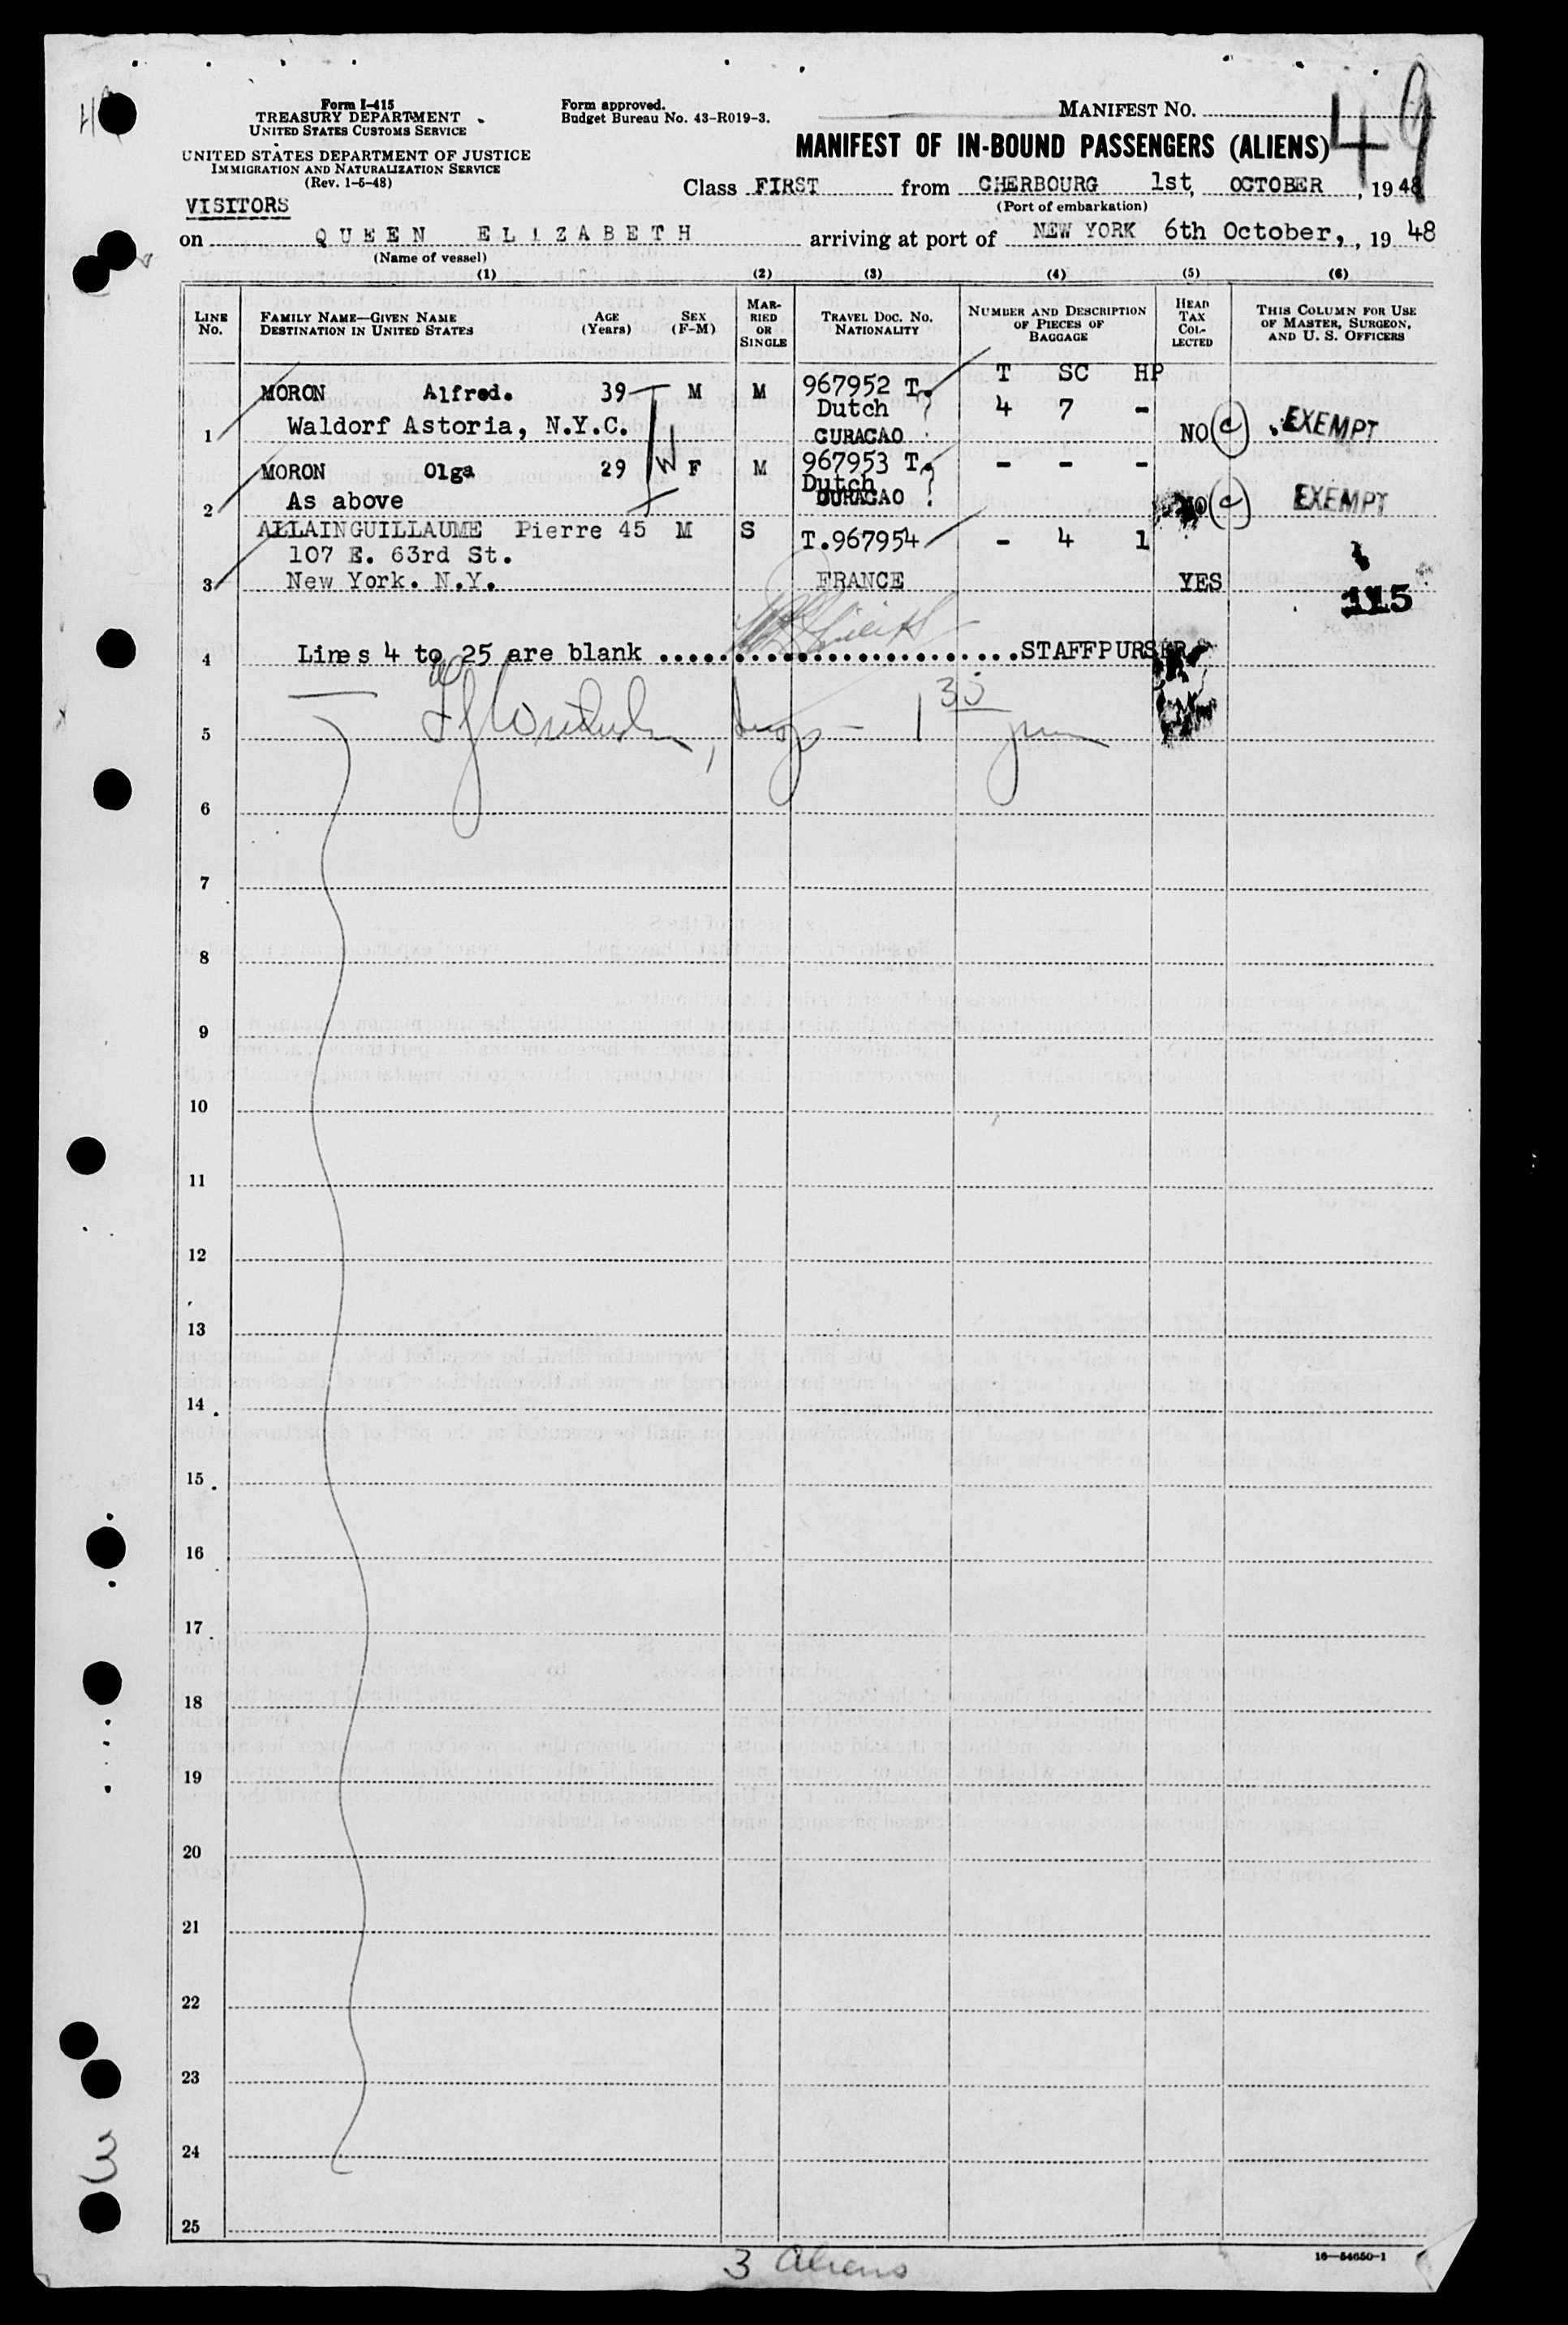 Form I-415
TREASURY DEPARTMENT
UNITED STATES CUSTOMS SERVICE
UNITED STATES DEPARTMENT OF JUSTICE
IMMIGRATION AND NATURALIZATION SERVICE
(Rev. 1-5-48)
VISITORS
Form approved.
Budget Bureau No. 43-R019-3.
MANIFEST NO.
49
MANIFEST OF IN-BOUND PASSENGERS (ALIENS)
Class FIRST from CHERBOURG 1st, OCTOBER, 1948
(Port of embarkation)
on QUEEN ELIZABETH arriving at port of NEW YORK 6th October, , 19 48
(Name of vessel)
(1) (2) (3) (4) (5) (6)
LINE No. FAMILY NAME—GIVEN NAME DESTINATION IN UNITED STATES AGE (Years) SEX (F-M) MARRIED OR SINGLE TRAVEL DOC. NO. NATIONALITY NUMBER AND DESCRIPTION OF PIECES OF BAGGAGE HEAD TAX COLLECTED THIS COLUMN FOR USE OF MASTER, SURGEON, AND U. S. OFFICERS
T SC HP
MORON Alfred. 39 M M 967952 T. 4 7 -
Waldorf Astoria, N.Y.C. Dutch
1 CURACAO NO (c) EXEMPT
MORON Olga 29 F M 967953 T. - - -
As above Dutch
2 CURACAO NO (c) EXEMPT
ALLAINGUILLAUME Pierre 45 M S T.967954 - 4 1
107 E. 63rd St.
3 New York. N.Y. FRANCE YES
115
4 Lines 4 to 25 are blank ........................STAFFPURSER
5 1 35
6
7
8
9
10
11
12
13
14
15
16
17
18
19
20
21
22
23
24
25
3
3 Aliens
16—54650-1